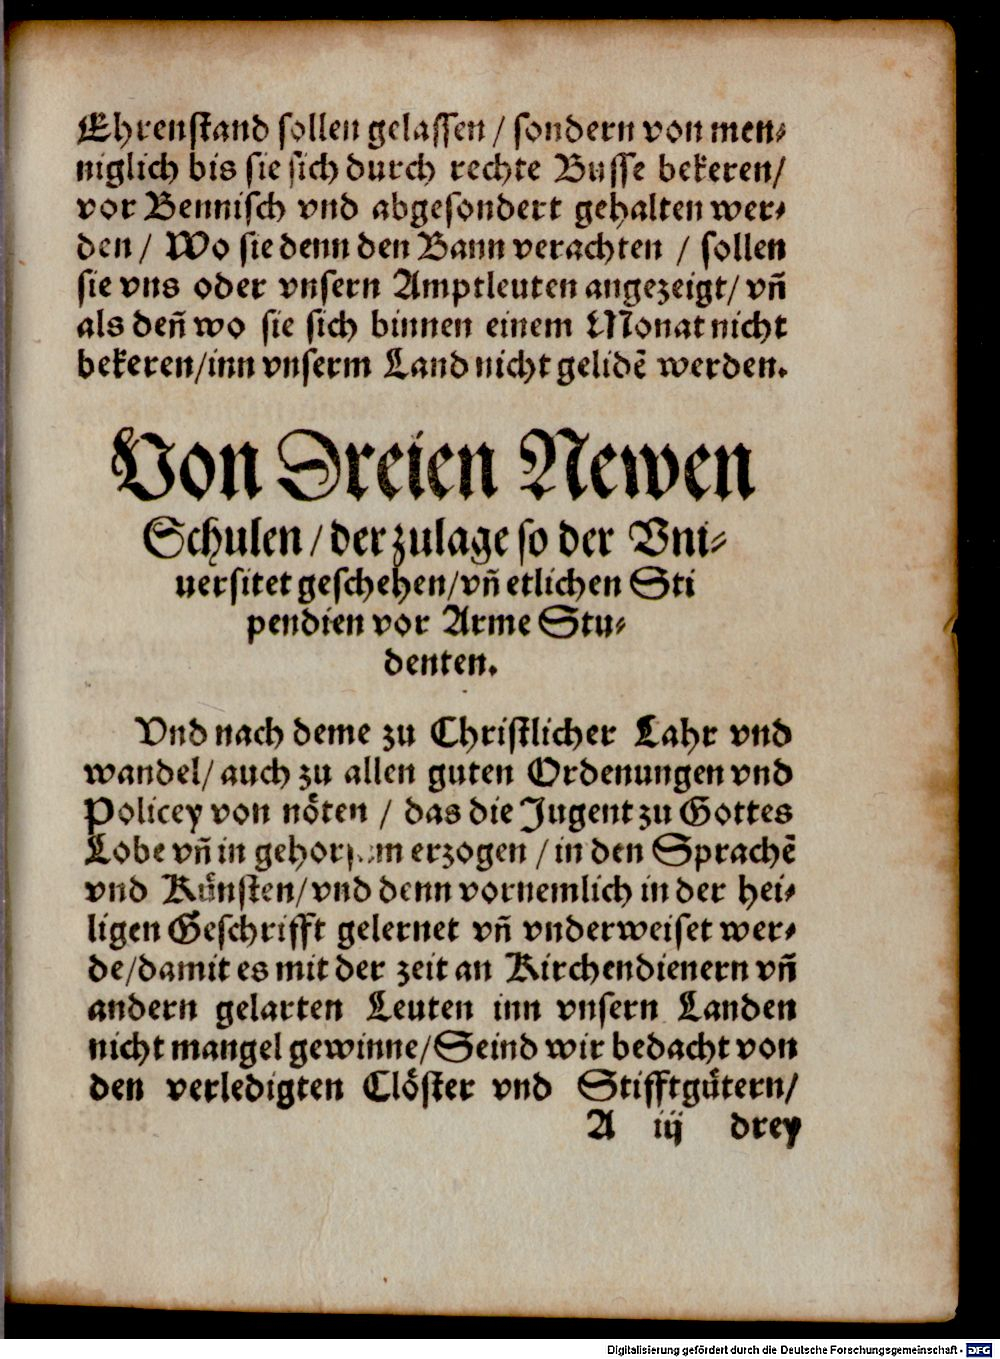 Ehrenstand sollen gelassen / sondern von men⸗
niglich bis sie sich durch rechte Busse bekeren/
vor Bennisch vnd abgesondert gehalten wer⸗
den / Wo sie denn den Bann verachten / sollen
sie vns oder vnsern Amptleuten angezeigt/ vn̄
als den̄ wo sie sich binnen einem Monat nicht
bekeren/inn vnserm Land nicht gelidē werden.
Von Dreien Newen
Schulen / der zulage so der Vni⸗
uersitet geschehen/vn̄ etlichen Sti
pendien vor Arme Stu⸗
denten.
Vnd nach deme zu Christlicher Lahr vnd
wandel/ auch zu allen guten Ordenungen vnd
Policey von nöten / das die Jugent zu Gottes
Lobe vn̄ in gehorsam erzogen / in den Sprachē
vnd Künsten/vnd denn vornemlich in der hei⸗
ligen Geschrifft gelernet vn̄ vnderweiset wer⸗
de/damit es mit der zeit an Kirchendienern vn̄
andern gelarten Leuten inn vnsern Landen
nicht mangel gewinne/Seind wir bedacht von
den verledigten Clöster vnd Stifftgütern/
A iij drey
Digitalisierung gefördert durch die Deutsche Forschungsgemeinschaft - DFG